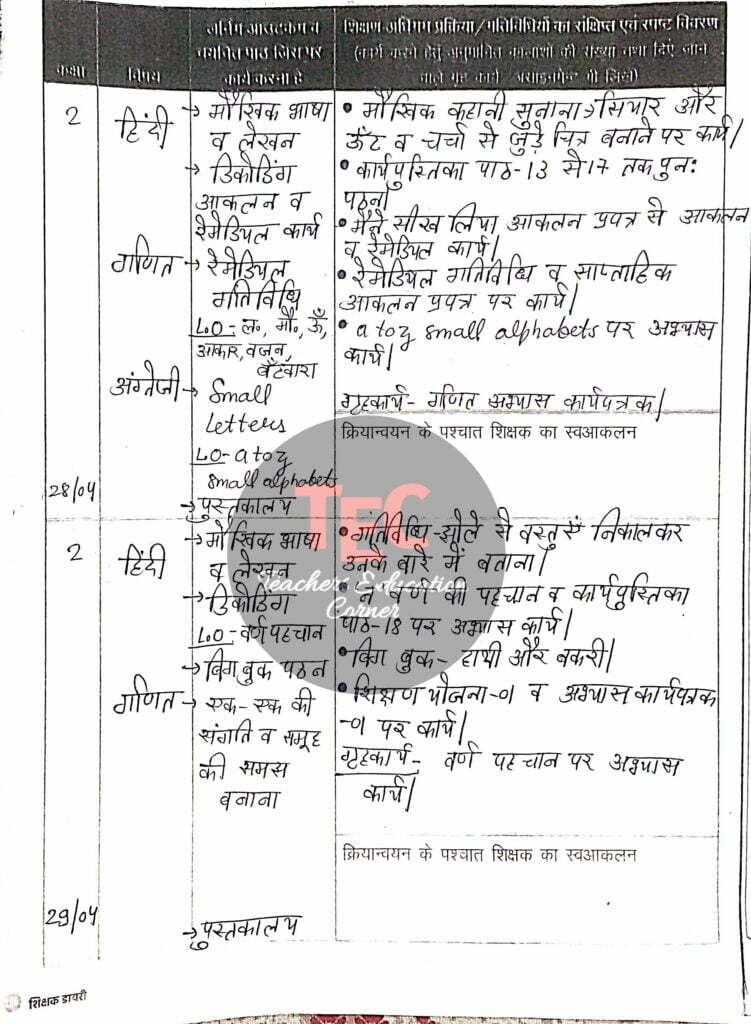 कक्षा
विषय
लर्निंग आउटकम व
चयनित पाठ जिस पर
कार्य करना है
शिक्षण अधिगम प्रक्रिया/गतिविधियों का संक्षिप्त एवं स्पष्ट विवरण
(कार्य करने हेतु अनुमानित कालांशों की संख्या तथा दिए जाने
वाले गृह कार्य / असाइनमेंट भी लिखें)
2
हिंदी
→ मौखिक भाषा
व लेखन
→ डिकोडिंग
आकलन व
रेमेडियल कार्य
गणित → रेमेडियल
गतिविधि
LO - ल०, मौ०, ऊँ,
आकार, वजन,
बँटवारा
अंग्रेजी → Small
letters
LO - a to z
small alphabets
→ पुस्तकालय
28/04
• मौखिक कहानी सुनाना → सियार और
ऊँट व चर्चा से जुड़े चित्र बनाने पर कार्य|
• कार्यपुस्तिका पाठ-13 से 17 तक पुन:
पठन|
• मैंने सीख लिया आकलन प्रपत्र से आकलन
व रेमेडियल कार्य|
• रेमेडियल गतिविधि व साप्ताहिक
आकलन प्रपत्र पर कार्य|
• a to z small alphabets पर अभ्यास
कार्य|
गृहकार्य - गणित अभ्यास कार्यपत्रक|
क्रियान्वयन के पश्चात शिक्षक का स्वआकलन
TEC
Teachers Education
Corner
2
हिंदी
→ मौखिक भाषा
व लेखन
→ डिकोडिंग
LO - वर्ण पहचान
→ बिग बुक पठन
गणित → एक-एक की
संगति व समूह
की समझ
बनाना
→ पुस्तकालय
29/04
• गतिविधि - झोले से वस्तुएँ निकालकर
उनके बारे में बताना|
• न वर्ण की पहचान व कार्यपुस्तिका
पाठ-18 पर अभ्यास कार्य|
• बिग बुक - हाथी और बकरी|
• शिक्षण योजना-01 व अभ्यास कार्यपत्रक
-01 पर कार्य|
गृहकार्य - वर्ण पहचान पर अभ्यास
कार्य|
क्रियान्वयन के पश्चात शिक्षक का स्वआकलन
शिक्षक डायरी